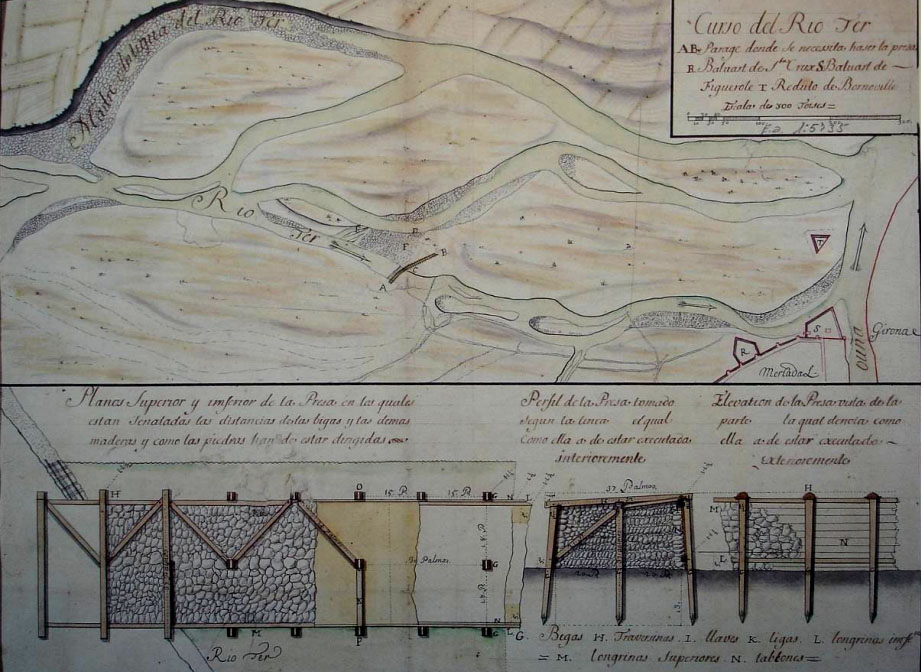 Curso del Rio Ter
AB. Parage donde se necesita haser la presa
R Baluart de Sta Crux S Baluart de
Figuerole T Reduto de Bornoville
Escala de 300 Toises =
Madre de Agua del Rio Ter
Rio Ter
A
B
C
E
F
T
R
S
Gerona
Mercadal
ouña
Planos Superior y imferior de la Presa en los quales
estan Señaladas las distancias de las bigas y las demas
maderas y como las piedras han de estar dirigidas
Perfil de la Presa tomado
segun la linea el qual
Como ella a de estar executada
interioremente
Elevateon de la Presa vista de la
parte la qual dencia como
ella a de estar executada
Exterioremente
H
O
15. P.
15. P.
G
N
L
37. Palmos
H
M
N
L
K
G
Palmos
P
M
G
L
G.
Rio Ter
Bigas H. Travesinas. I. llaves K. ligas. L. longrinas
= M. longrinas Superiores. N. tablones =